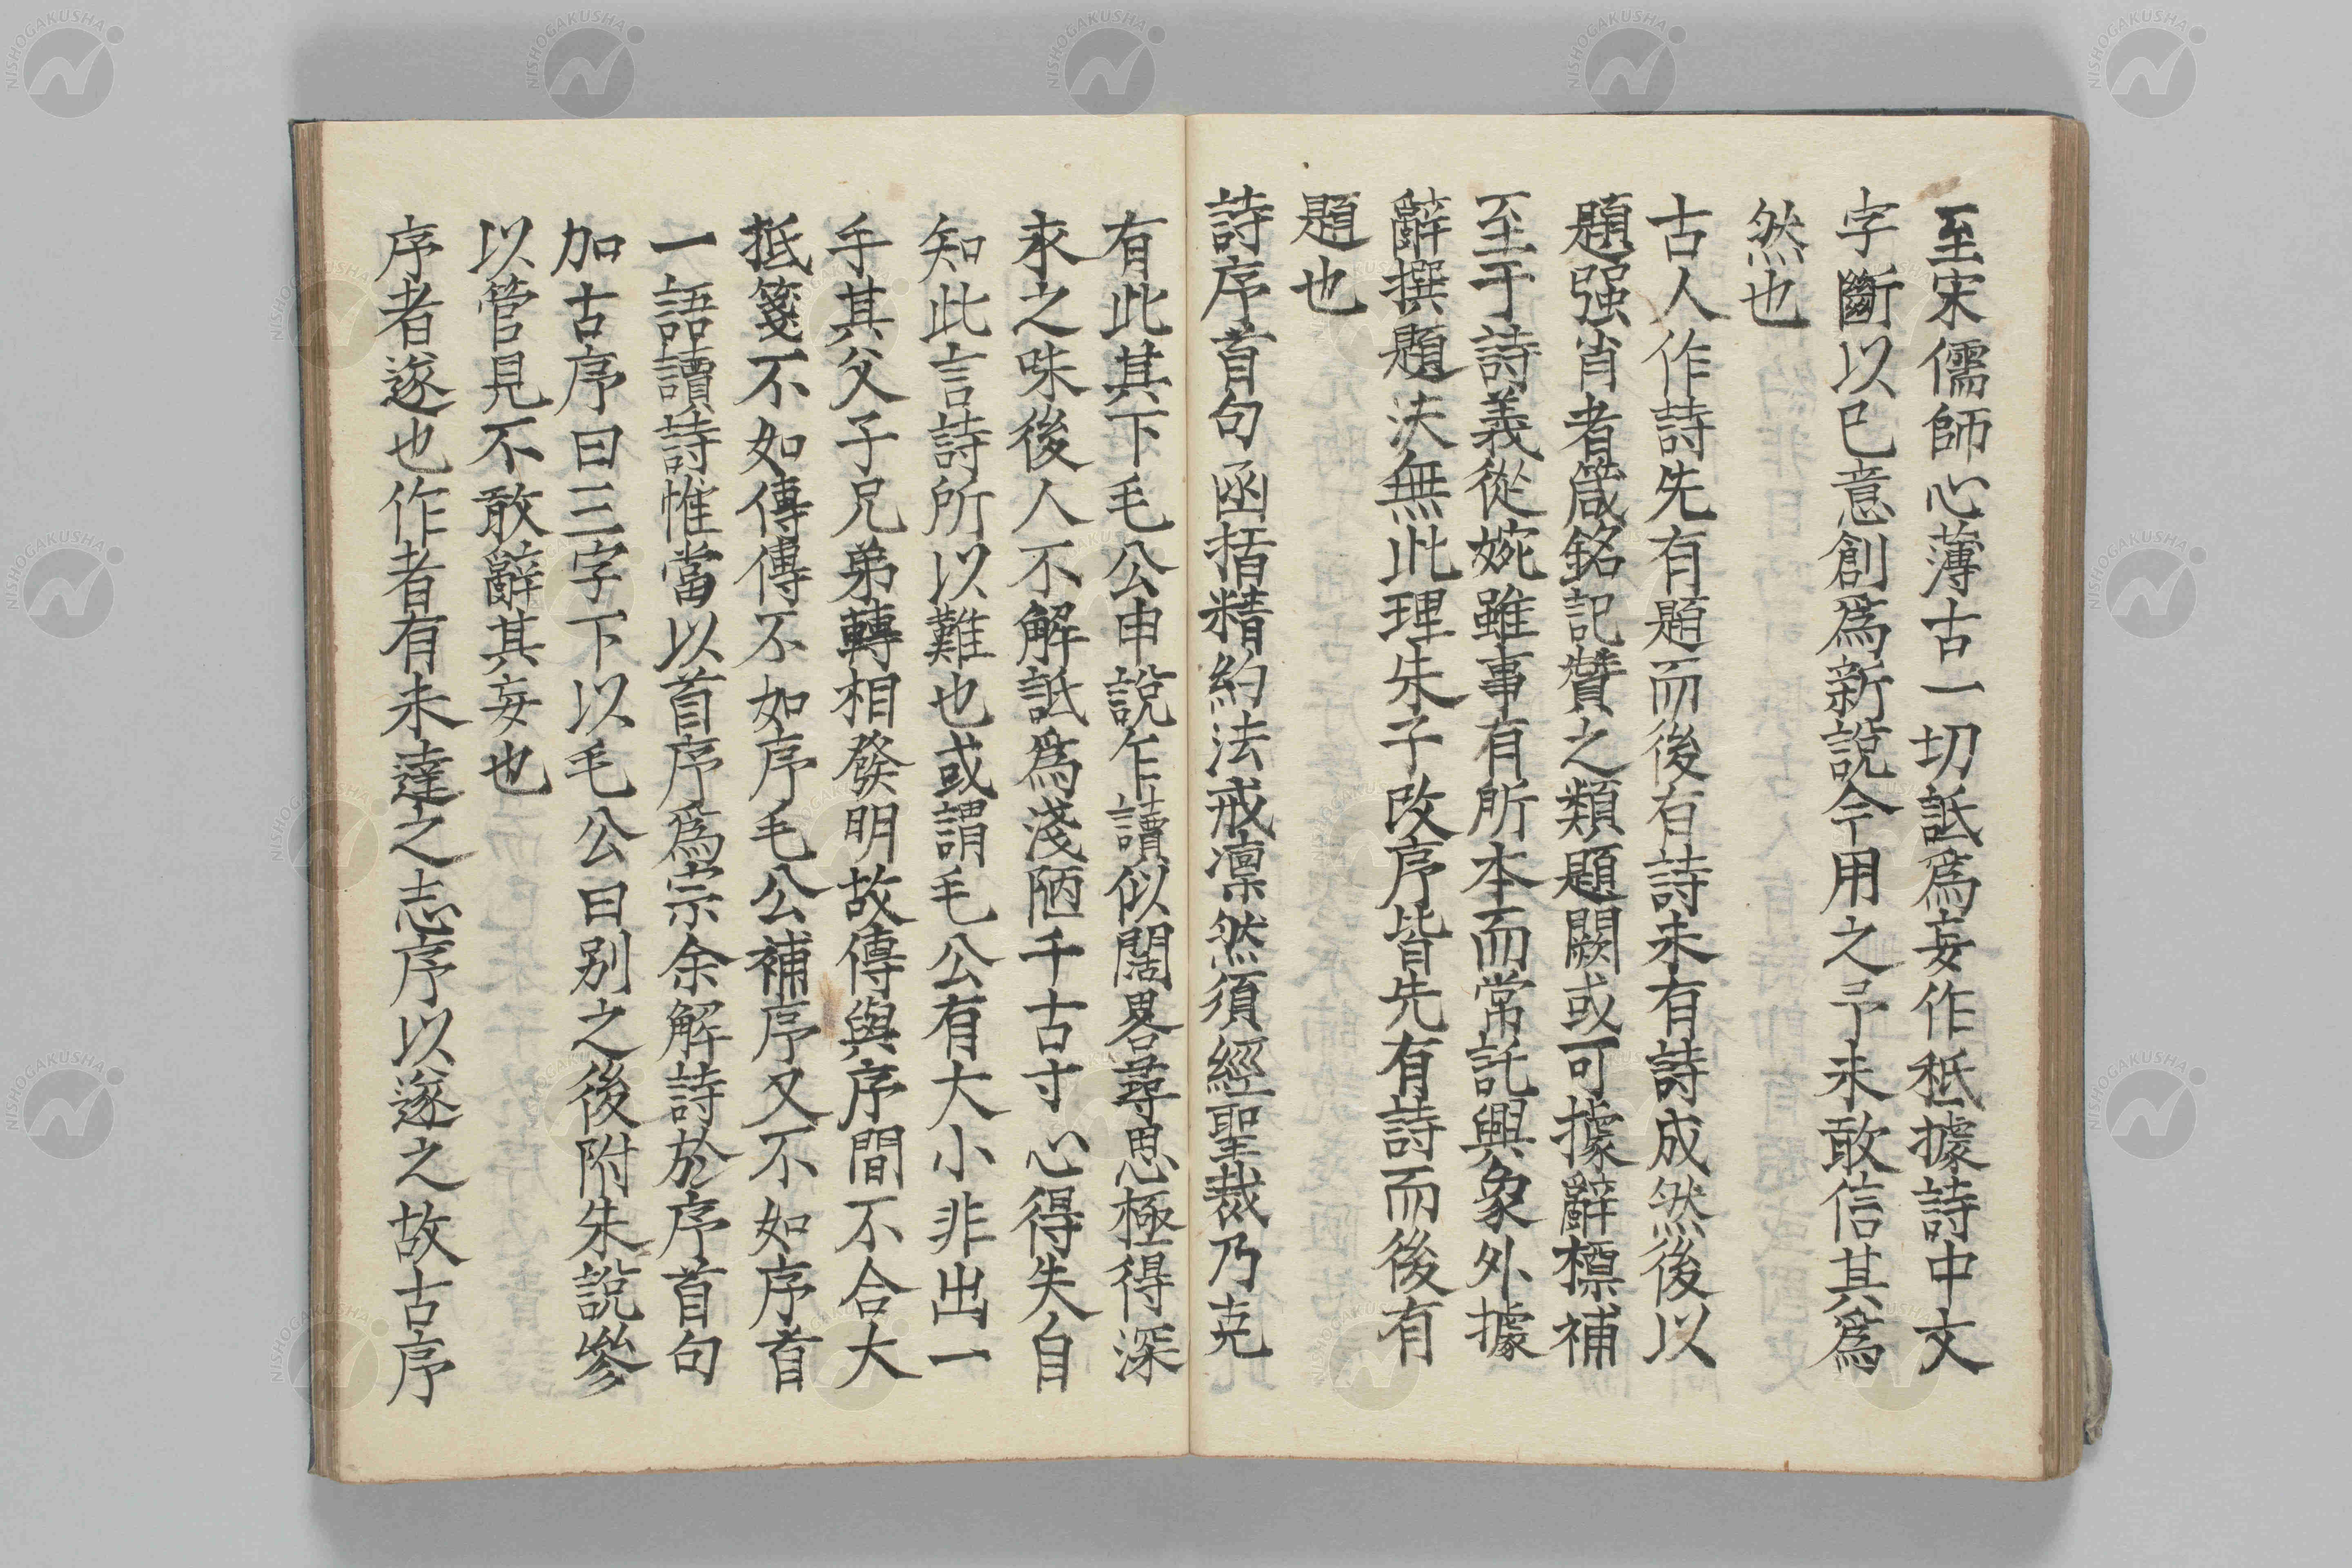 至宋儒師心薄古一切詆爲妄作秪據詩中文
字斷以已意創爲新說今用之予未敢信其爲
然也
古人作詩先有題而後有詩未有詩成然後以
題强肖者箴銘記贊之類題闕或可據辭標補
至于詩義從婉雖事有所本而常託興象外據
辭撰題决無此理朱子改序皆先有詩而後有
題也
詩序首句函括精約法戒凜然須經聖裁乃克
有此其下毛公申說乍讀似闊畧尋思極得深
求之味後人不解詆爲淺陋千古寸心得失自
知此言詩所以難也或謂毛公有大小非出一
手其父子兄弟轉相發明故傳與序間不合大
抵箋不如傳傳不如序毛公補序又不如序首
一語讀詩惟當以首序爲宗余解詩於序首句
加古序曰三字下以毛公曰別之後附朱說參
以管見不敢辭其妄也
序者遂也作者有未達之志序以遂之故古序
NISHOGAKUSHA